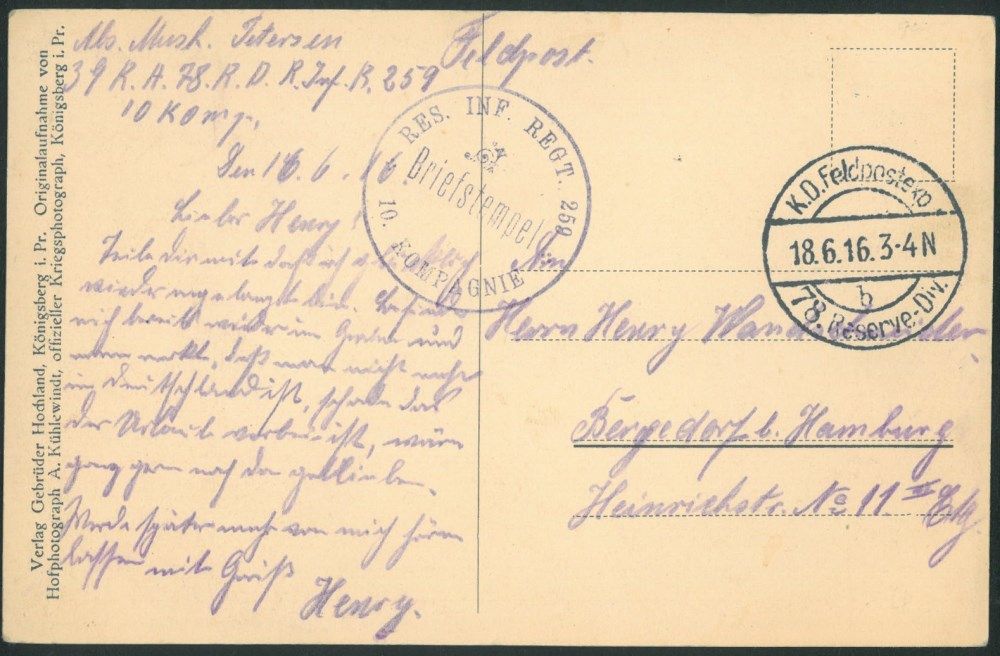 Verlag Gebrüder Hochland, Königsberg i. Pr. Originalaufnahme von
Hofphotograph A. Kühlewindt, offizieller Kriegsphotograph, Königsberg i. Pr.
Abs. Musk. Petersen
39 R. A. 78. R. D. R. Inf. R. 259
10 Komp.
Den 16.6.16.
Lieber Henry!
Teile Dir mit daß ich
wieder angelangt bin. Befinde
mich bereits wieder im Graben und
man merkt, daß man nicht mehr
in Deutschland ist, schade das
der Urlaub vorbei ist, wäre
ganz gern noch da geblieben.
Werde später mehr von mich hören
lassen mit Gruß
Henry.
Feldpost.
RES. INF. REGT. 259
Briefstempel
10. KOMPAGNIE
K.D. Feldpostexp
18.6.16. 3-4 N
b
78. Reserve-Div.
Herrn Henry
Bergedorf b. Hamburg
Heinrichstr. No 11 II Etg.